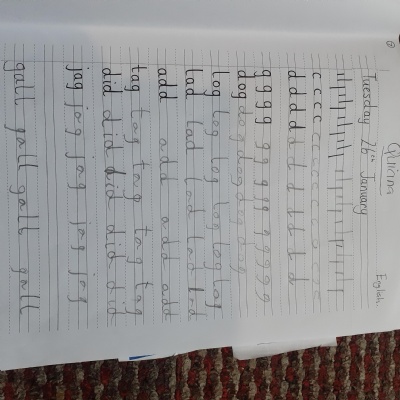 English
Tuesday 26th January
c c c c c c c c c c c c
d d d d d d d d d d
g g g g g g g g g g g
dog dog dog dog dog
log log log log log log
lad lad lad lad lad
add add add add
tag tag tag tag tag
did did did did did did
jag jag jag jag jag
gall gall gall gall